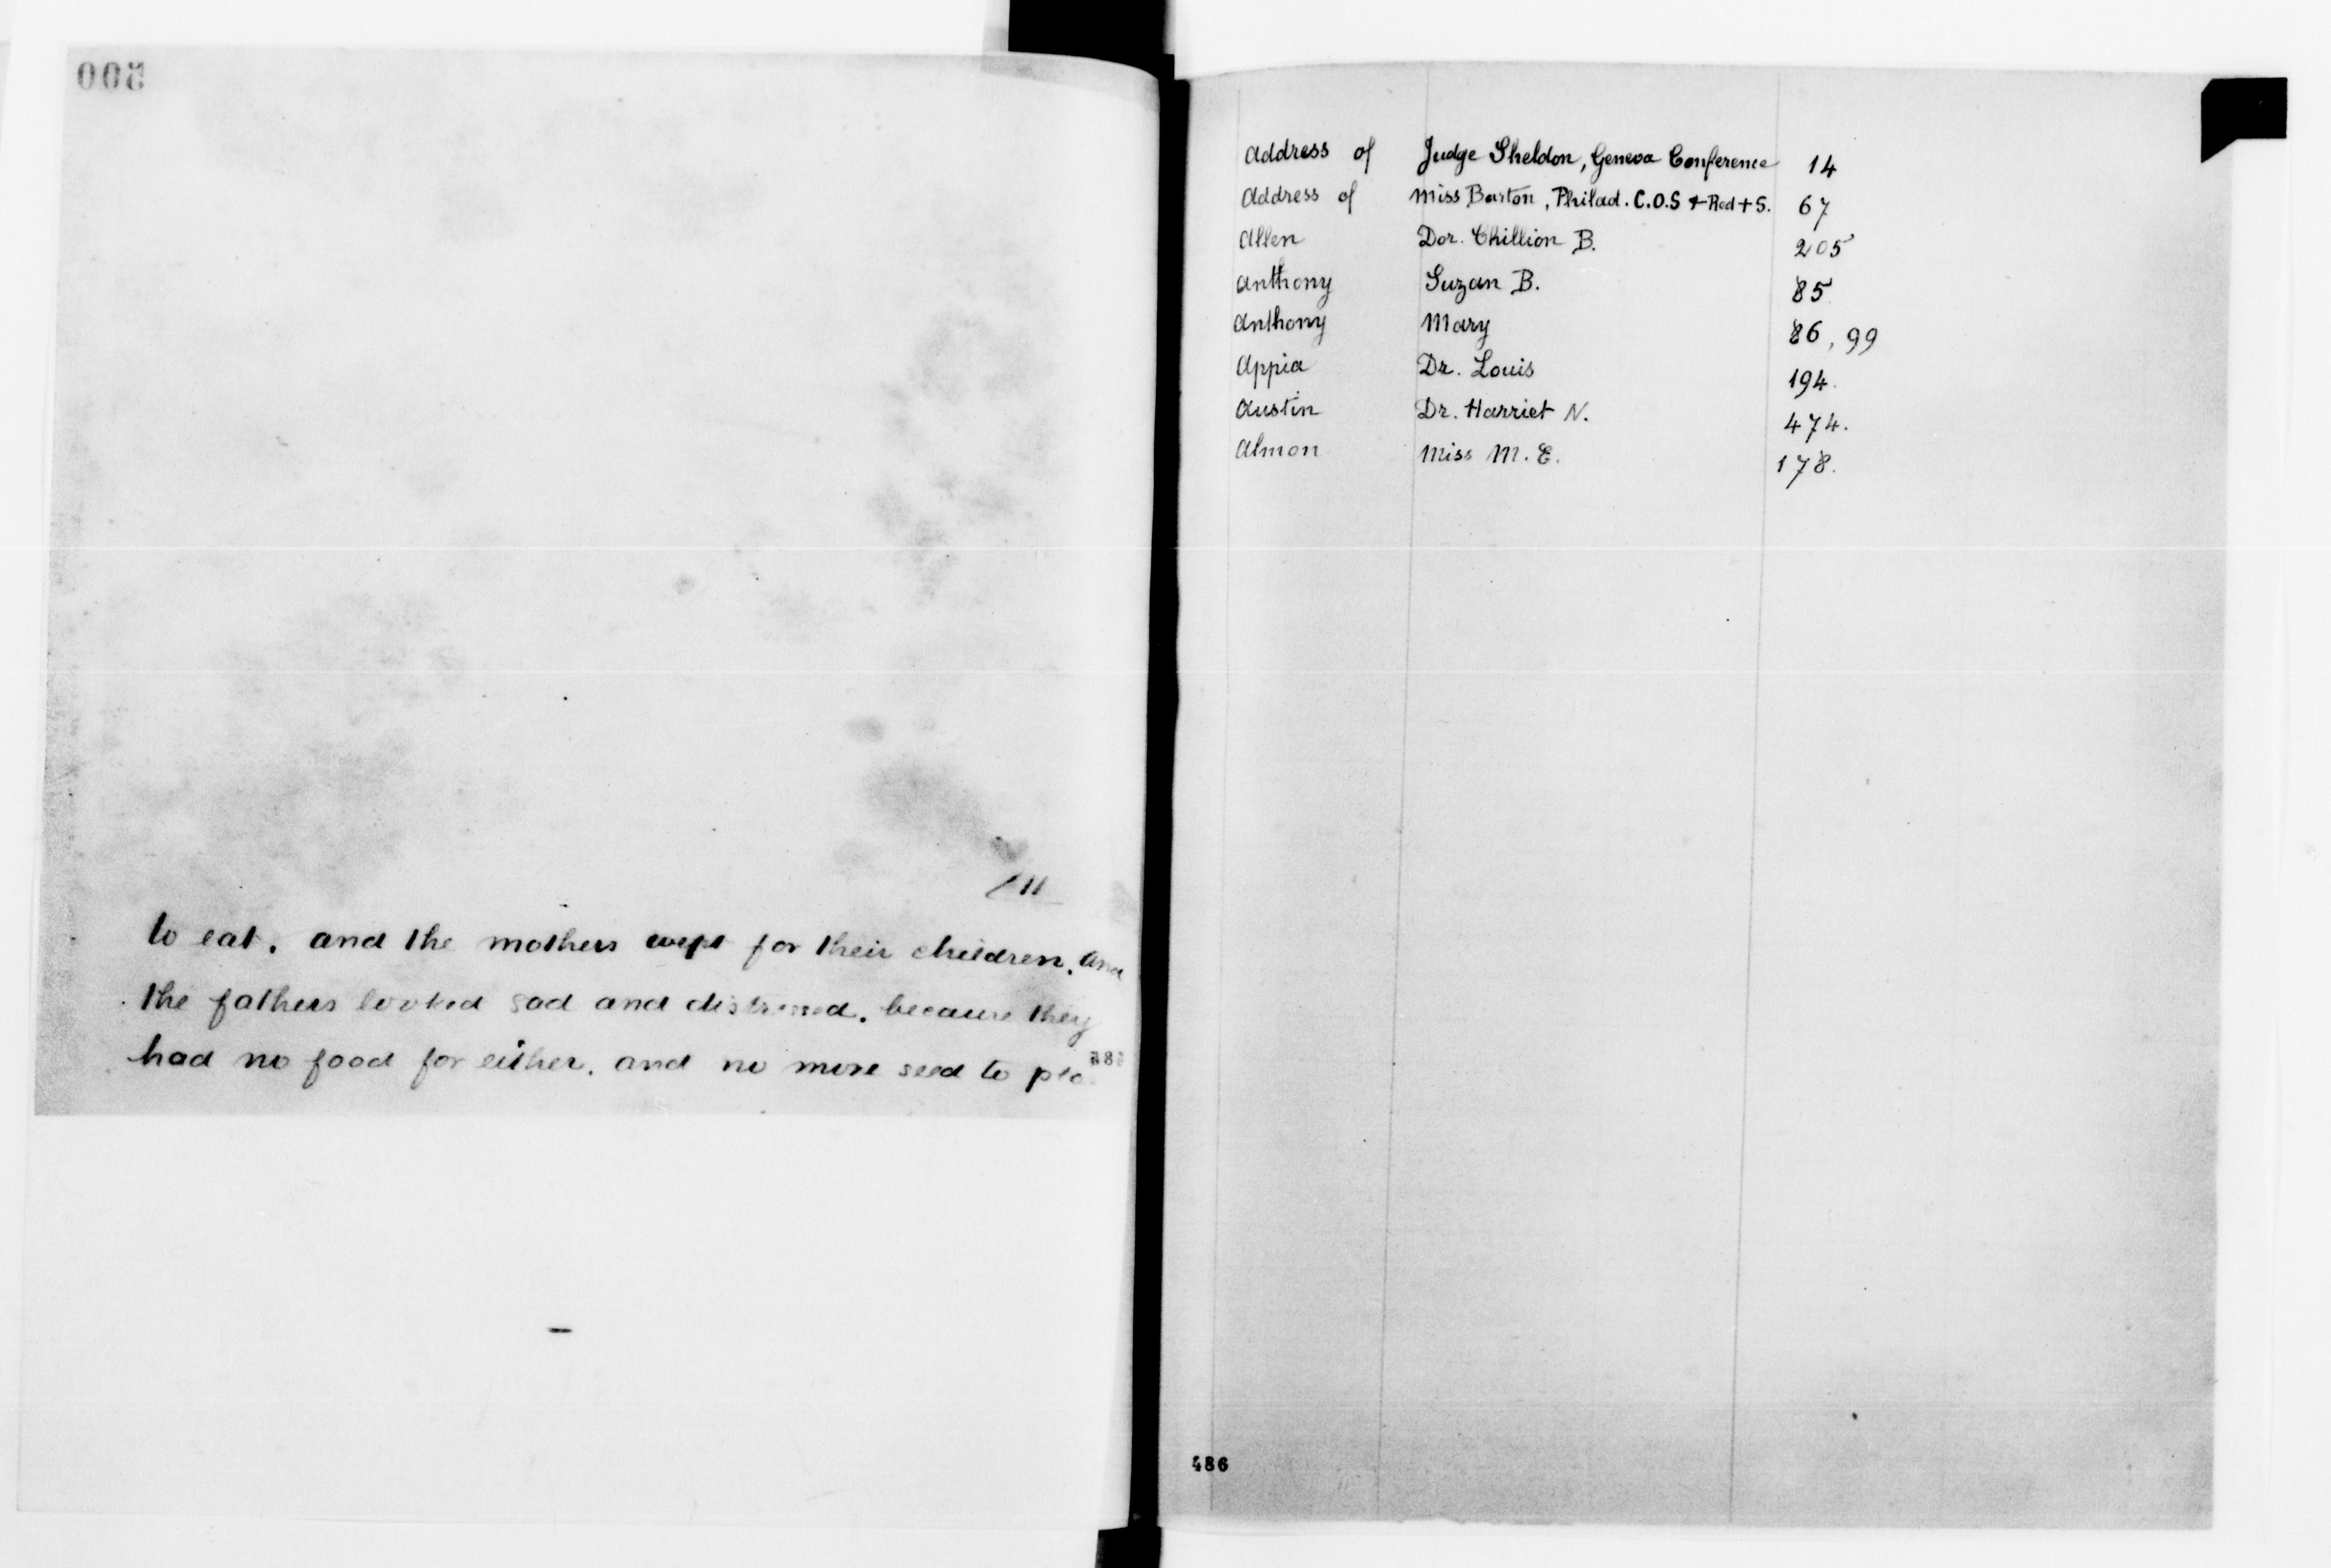 500
11
to eat, and the mothers wept for their children, and
the fathers looked sad and distressed, because they
had no food for either, and no more seed to
Address of Judge Sheldon, Geneva Conference 14
Address of Miss Barton, Philad. C.O.S + Red + S. 67
Allen Dor. Chillion B. 205
Anthony Suzan B. 85
Anthony Mary 86, 99
Appia Dr. Louis 194.
Austin Dr. Harriet N. 474.
Almon Miss M. E. 178.
486